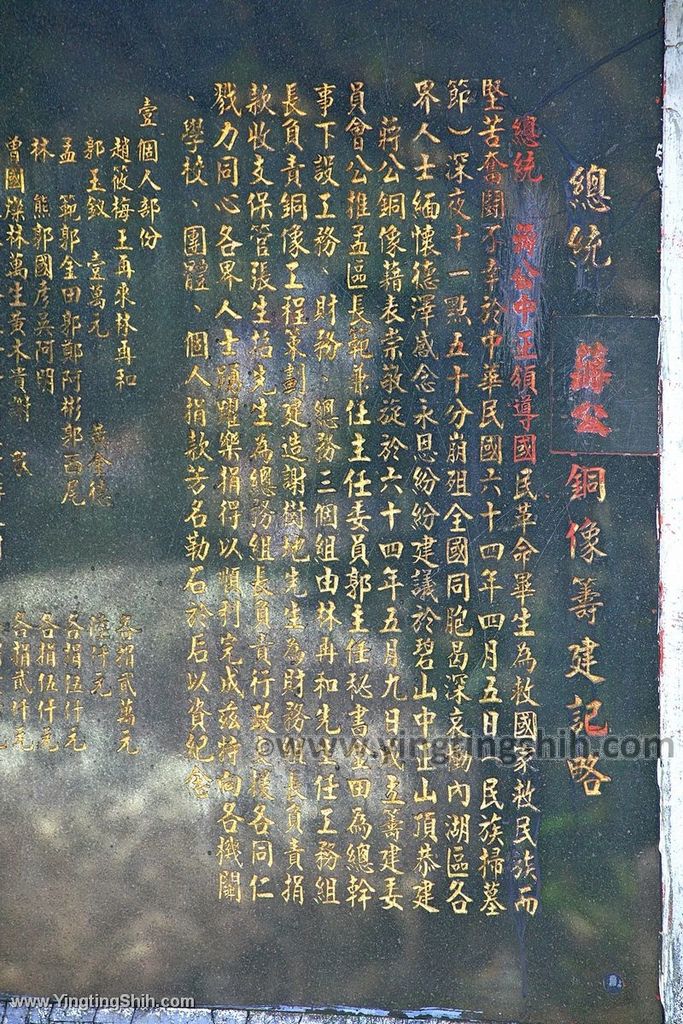 總統 蔣公銅像籌建記略
總統 蔣公中正領導國民革命畢生為救國家救民族而
堅苦奮鬪不幸於中華民國六十四年四月五日(民族掃墓
節)深夜十一點五十分崩殂全國同胞曷深哀慟內湖區各
界人士緬懷德澤感念永恩紛紛建議於碧山中正山頂恭建
蔣公銅像藉表崇敬旋於六十四年五月九日成立籌建委
員會公推孟區長範兼任主任委員郭主任秘書金田為總幹
事下設工務、財務、總務三個組由林再和先生任工務組
長負責銅像工程策劃建造謝樹地先生為財務組長負責捐
款收支保管張生招先生為總務組長負責行政支援各同仁
戮力同心各界人士踴躍樂捐得以順利完成茲特向各機關
、學校、團體、個人捐款芳名勒石於后以資紀念
壹個人部份
趙筱梅 王再來 林再和 各捐貳萬元
郭玉釵 壹萬元 黃奎德 仟元
孟 範 郭金田 郭鄭阿彬 郭西尾 各捐伍仟元
林 熊 郭國彥 吳阿明 各捐伍仟元
曾國燦 林萬生 黃木貴 謝 各捐貳仟元
©www.yingtingShih.com
www.YingtingShih.com